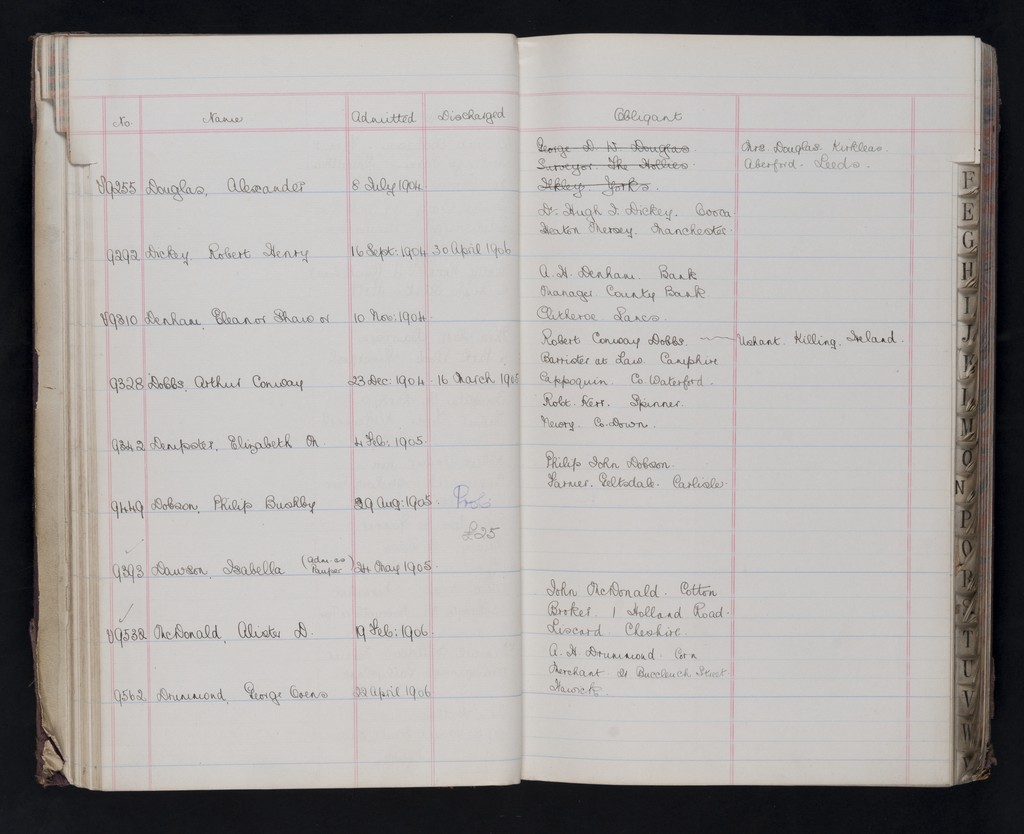 No. Name Admitted Discharged Obligant
George D. W. Douglas Mrs. Douglas. Kirkleas.
Surveyor The Hollies Aberford. Leeds.
V9255 Douglas, Alexander 8 July 1904 Ilkley Yorks.
Dr. Hugh T. Dickey.
Heaton Mersey. Manchester.
9292 Dickey Robert Henry 16 Sept: 1904 30 April 1906
A. H. Denham. Bank
Manager County Bank
V9310 Denham, Eleanor Shaw or 10 Nov: 1904. Clitheroe Lancs.
Robert Conway Dobbs. Ushant. Killing. Ireland.
Barrister at Law. Camphire
9328 Dobbs, Arthur Conway 23 Dec: 1904. 16 March Cappoquin. Co. Waterford.
Robt. Kerr. Spinner.
Newry. Co. Down.
9342 Dempster, Elizabeth M. 4 Feb: 1905.
Philip John Dobson.
Farmer. Geltsdale. Carlisle.
9449 Dobson, Philip Bushby 29 Aug: 1905.
£25
9393 Dawson, Isabella (Adm. as Pauper) 24 May 1905.
John McDonald. Cotton
Broker. 1 Holland Road.
V9532 McDonald, Alister D. 19 Feb: 1906. Liscard Cheshire
A. H. Drummond. Corn
Merchant 21 Buccleuch Street
9562 Drummond, George 28 April 1906 Hawick.
F
E
G
H
I
J
K
L
M
O
N
P
Q
R
S
T
U
V
W